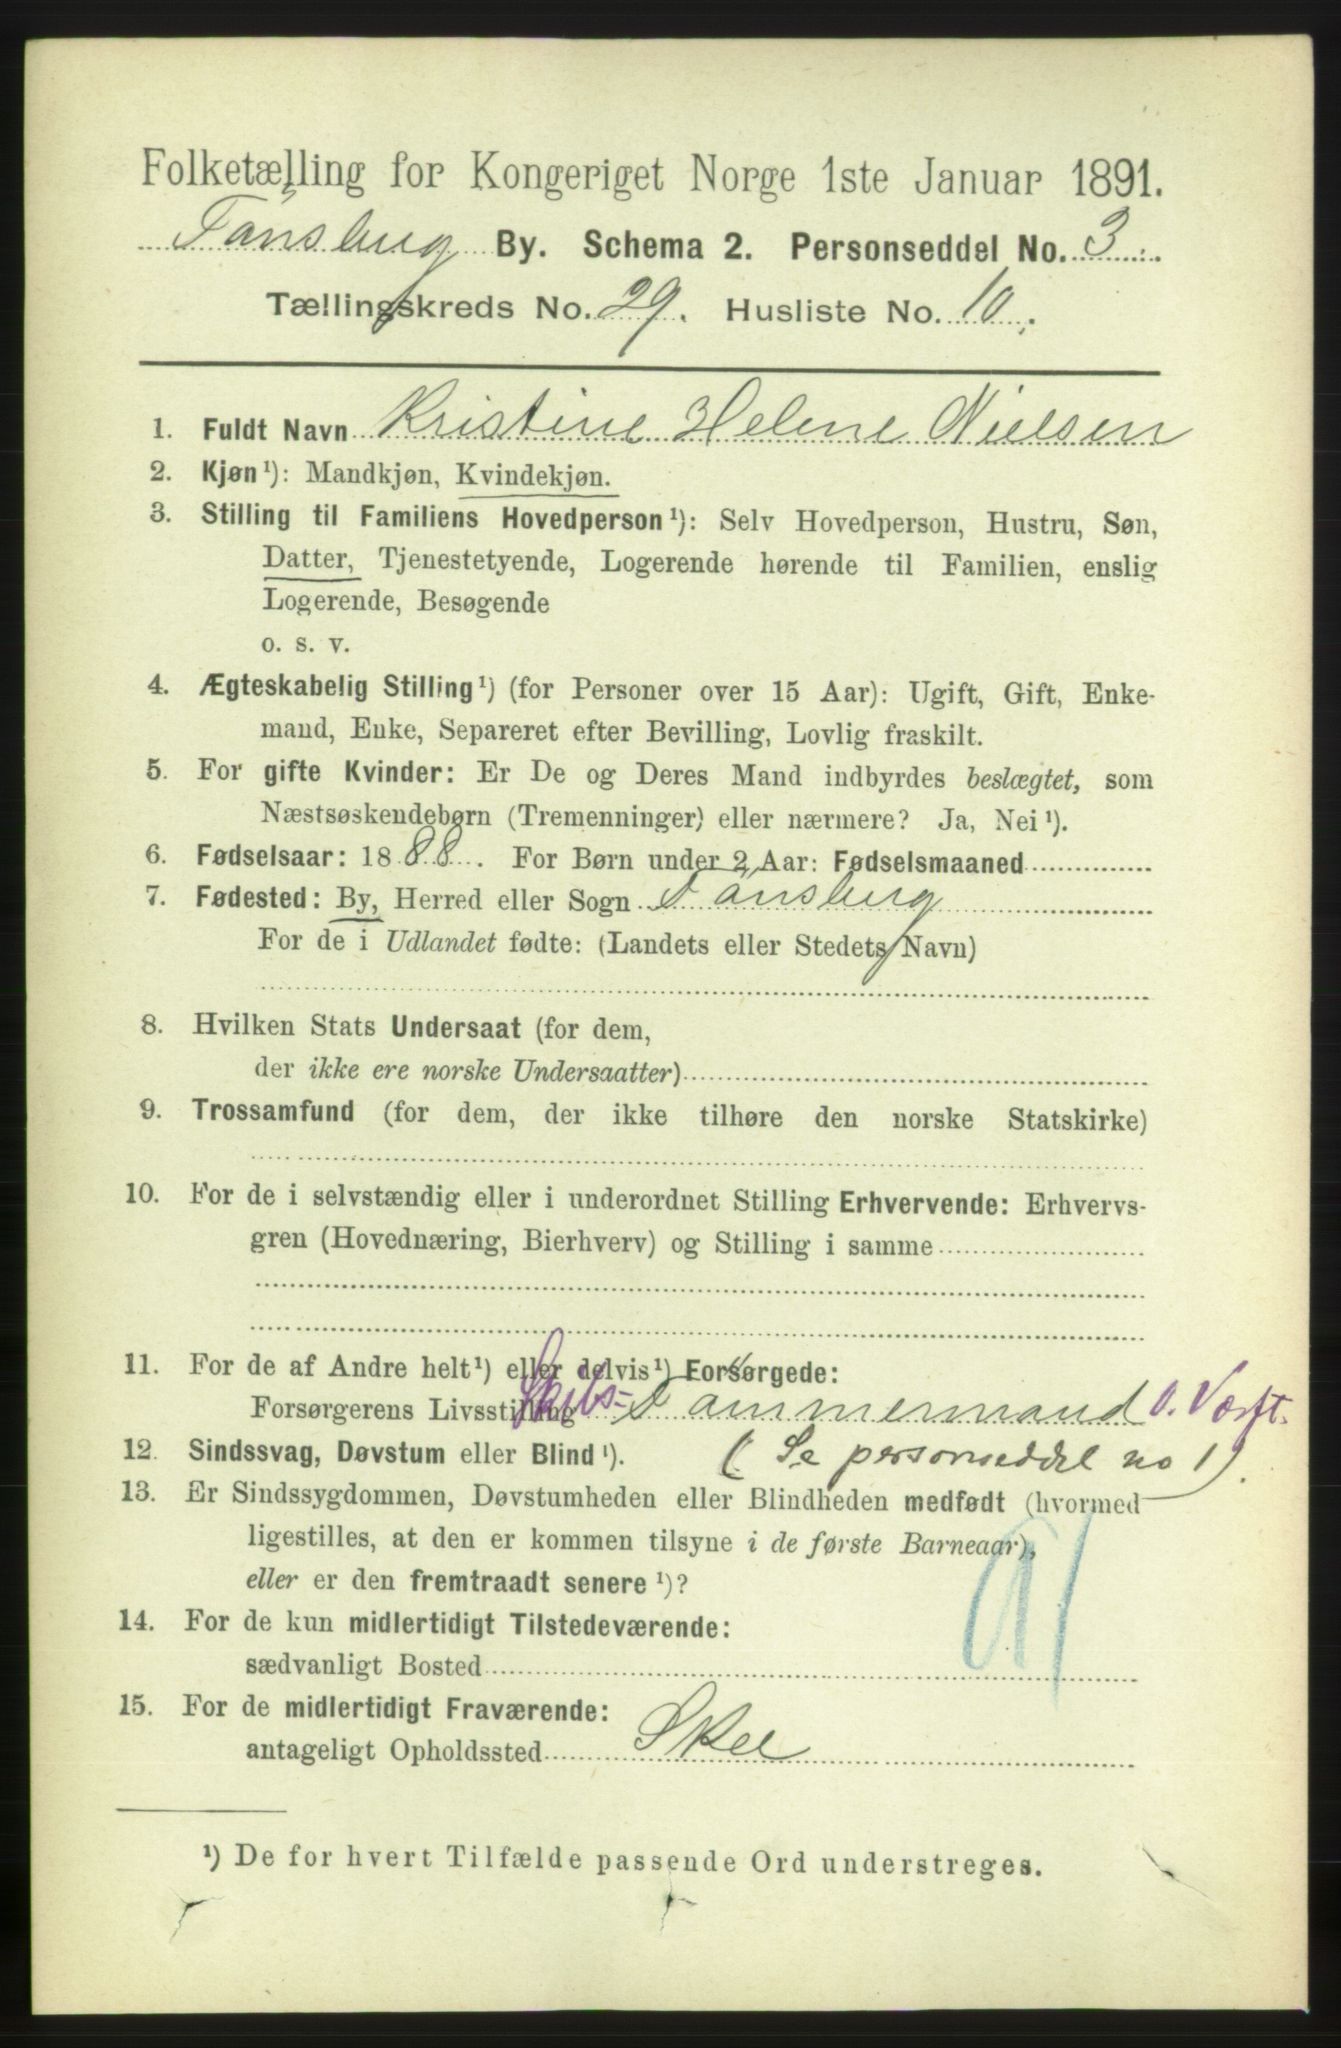 Folketælling for Kongeriget Norge 1ste Januar 1891.
Tönsberg By. Schema 2. Personseddel No. 3.
Tællingskreds No. 29. Husliste No. 10.
1. Fuldt Navn Kristine Helene Nielsen
2. Kjøn¹): Mandkjøn, Kvindekjøn.
3. Stilling til Familiens Hovedperson¹): Selv Hovedperson, Hustru, Søn,
Datter, Tjenestetyende, Logerende hørende til Familien, enslig
Logerende, Besøgende
o. s. v.
4. Ægteskabelig Stilling¹) (for Personer over 15 Aar): Ugift, Gift, Enke-
mand, Enke, Separeret efter Bevilling, Lovlig fraskilt.
5. For gifte Kvinder: Er De og Deres Mand indbyrdes beslægtet, som
Næstsøskendebørn (Tremenninger) eller nærmere? Ja, Nei¹).
6. Fødselsaar: 1888. For Børn under 2 Aar: Fødselsmaaned
7. Fødested: By, Herred eller Sogn Tönsberg
For de i Udlandet fødte: (Landets eller Stedets Navn)
8. Hvilken Stats Undersaat (for dem,
der ikke ere norske Undersaatter)
9. Trossamfund (for dem, der ikke tilhøre den norske Statskirke)
10. For de i selvstændig eller i underordnet Stilling Erhvervende: Erhvervs-
gren (Hovednæring, Bierhverv) og Stilling i samme
11. For de af Andre helt¹) eller delvis¹) Forsørgede:
Forsørgerens Livsstilling Skibs- Tömmermand o. Værft.
12. Sindssvag, Døvstum eller Blind¹). (Se personseddel no 1).
13. Er Sindssygdommen, Døvstumheden eller Blindheden medfødt (hvormed
ligestilles, at den er kommen tilsyne i de første Barneaar),
eller er den fremtraadt senere¹)?
14. For de kun midlertidigt Tilstedeværende:
sædvanligt Bosted
15. For de midlertidigt Fraværende:
antageligt Opholdssted
¹) De for hvert Tilfælde passende Ord understreges.